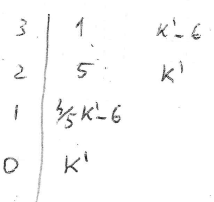 3 | 1 K'-6
2 | 5 K'
1 | 4/5 K'-6
0 | K'